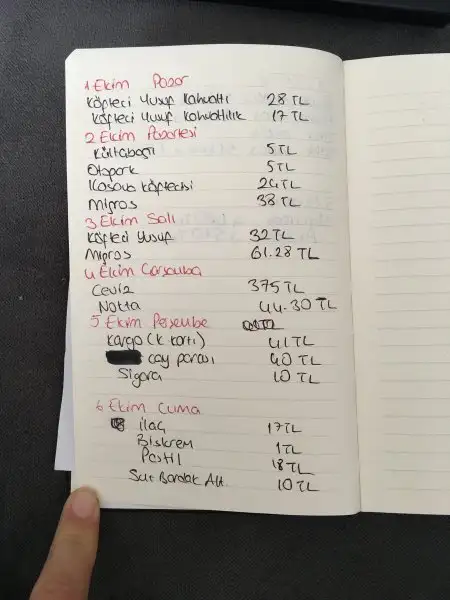 1 Ekim Pazar
Köfteci Yusuf Kahvaltı 28 TL
Köfteci Yusuf Kahvaltılık 17 TL
2 Ekim Pazartesi
Kültabağı 5 TL
Otopark 5 TL
Kasava köftecisi 24 TL
Migros 38 TL
3 Ekim Salı
Köfteci Yusuf 32 TL
Migros 61.28 TL
4 Ekim Çarşamba
Ceviz 375 TL
Notta 44.30 TL
5 Ekim Perşembe
Kargo (K kartı) 41 TL
çay parası 40 TL
Sigara 10 TL
6 Ekim Cuma
ilaç 17 TL
Biskrem 1 TL
Pastil 18 TL
Su Bardak Alt. 10 TL